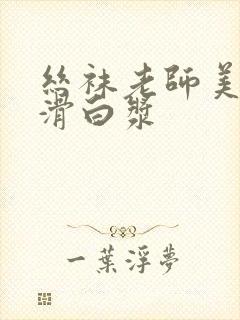 絲袜老師美
滑白漿
一葉浮夢